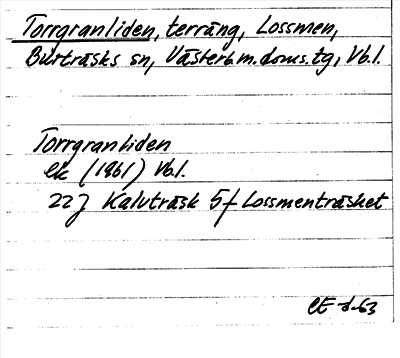 Torrgranliden, terräng, Lossmen,
Burträsks sn, Västerb.m.doms.tg, Vb.l.
Torrgranliden
ek (1961) Vb.l.
22J Kalvträsk 5f Lossmenträsket